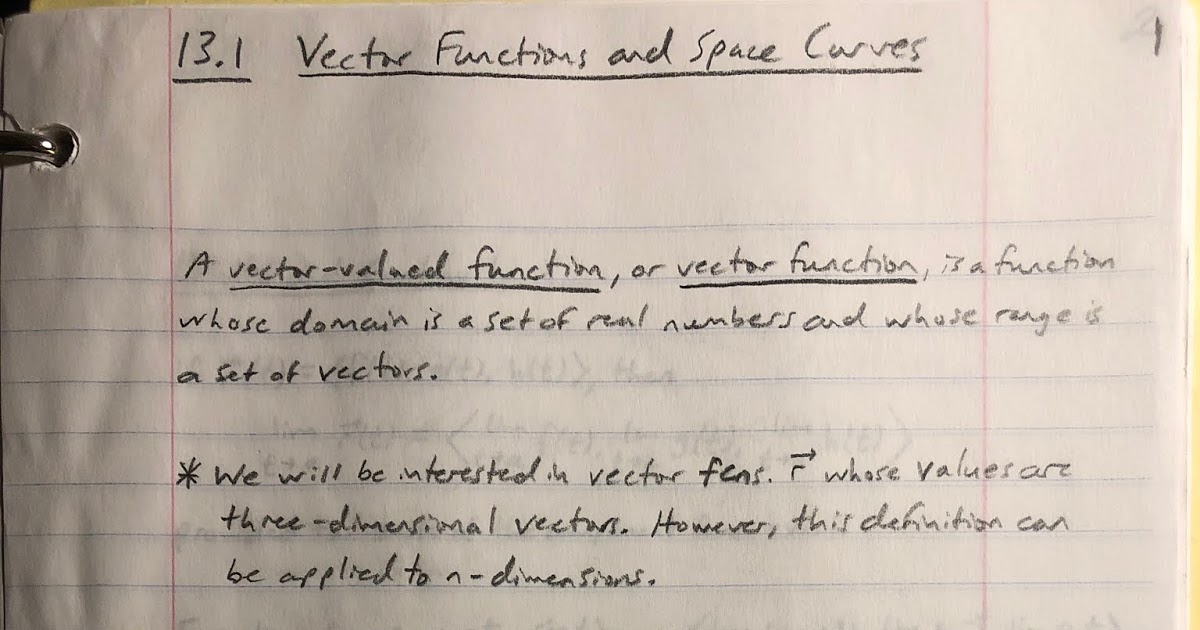 13.1 Vector Functions and Space Curves
1
A vector-valued function, or vector function, is a function
whose domain is a set of real numbers and whose range is
a set of vectors.
* We will be interested in vector fcns. r⃗ whose values are
three-dimensional vectors. However, this definition can
be applied to n-dimensions.